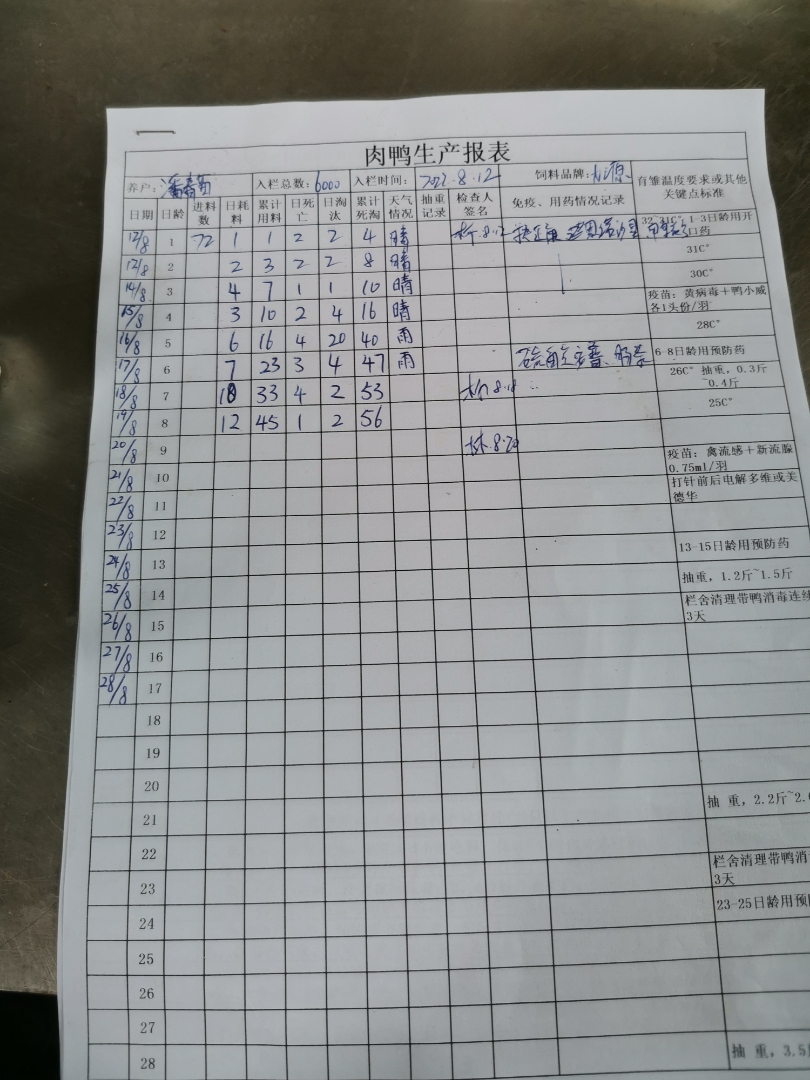 肉鸭生产报表
养户: 入栏总数: 6000 入栏时间: 2022.8.12 饲料品牌: 育雏温度要求或其他关键点标准
日期 日龄 进料数 日耗料 累计用料 日死亡 日淘汰 累计死淘 天气情况 抽重记录 检查人签名 免疫、用药情况记录
12/8 1 72 1 1 2 2 4 晴 林 8.12 32~31C° 1-3日龄用开口药
12/8 2 2 3 2 2 8 晴 31C°
14/8 3 4 7 1 1 10 晴 30C°
15/8 4 3 10 2 4 16 晴 疫苗：黄病毒＋鸭小威各1头份/羽
16/8 5 6 16 4 20 40 雨 28C°
17/8 6 7 23 3 4 47 雨 6-8日龄用预防药
18/8 7 10 33 4 2 53 林 8.18 26C° 抽重，0.3斤~0.4斤
19/8 8 12 45 1 2 56 25C°
20/8 9 林 8.20 疫苗：禽流感＋新流腺0.75ml/羽
21/8 10 打针前后电解多维或美德华
22/8 11
23/8 12
24/8 13 13-15日龄用预防药
25/8 14 抽重，1.2斤~1.5斤
26/8 15 栏舍清理带鸭消毒连续3天
27/8 16
28/8 17
18
19
20
21 抽 重，2.2斤~2.
22
23 栏舍清理带鸭消 3天
24 23-25日龄用预
25
26
27
28 抽 重，3.5